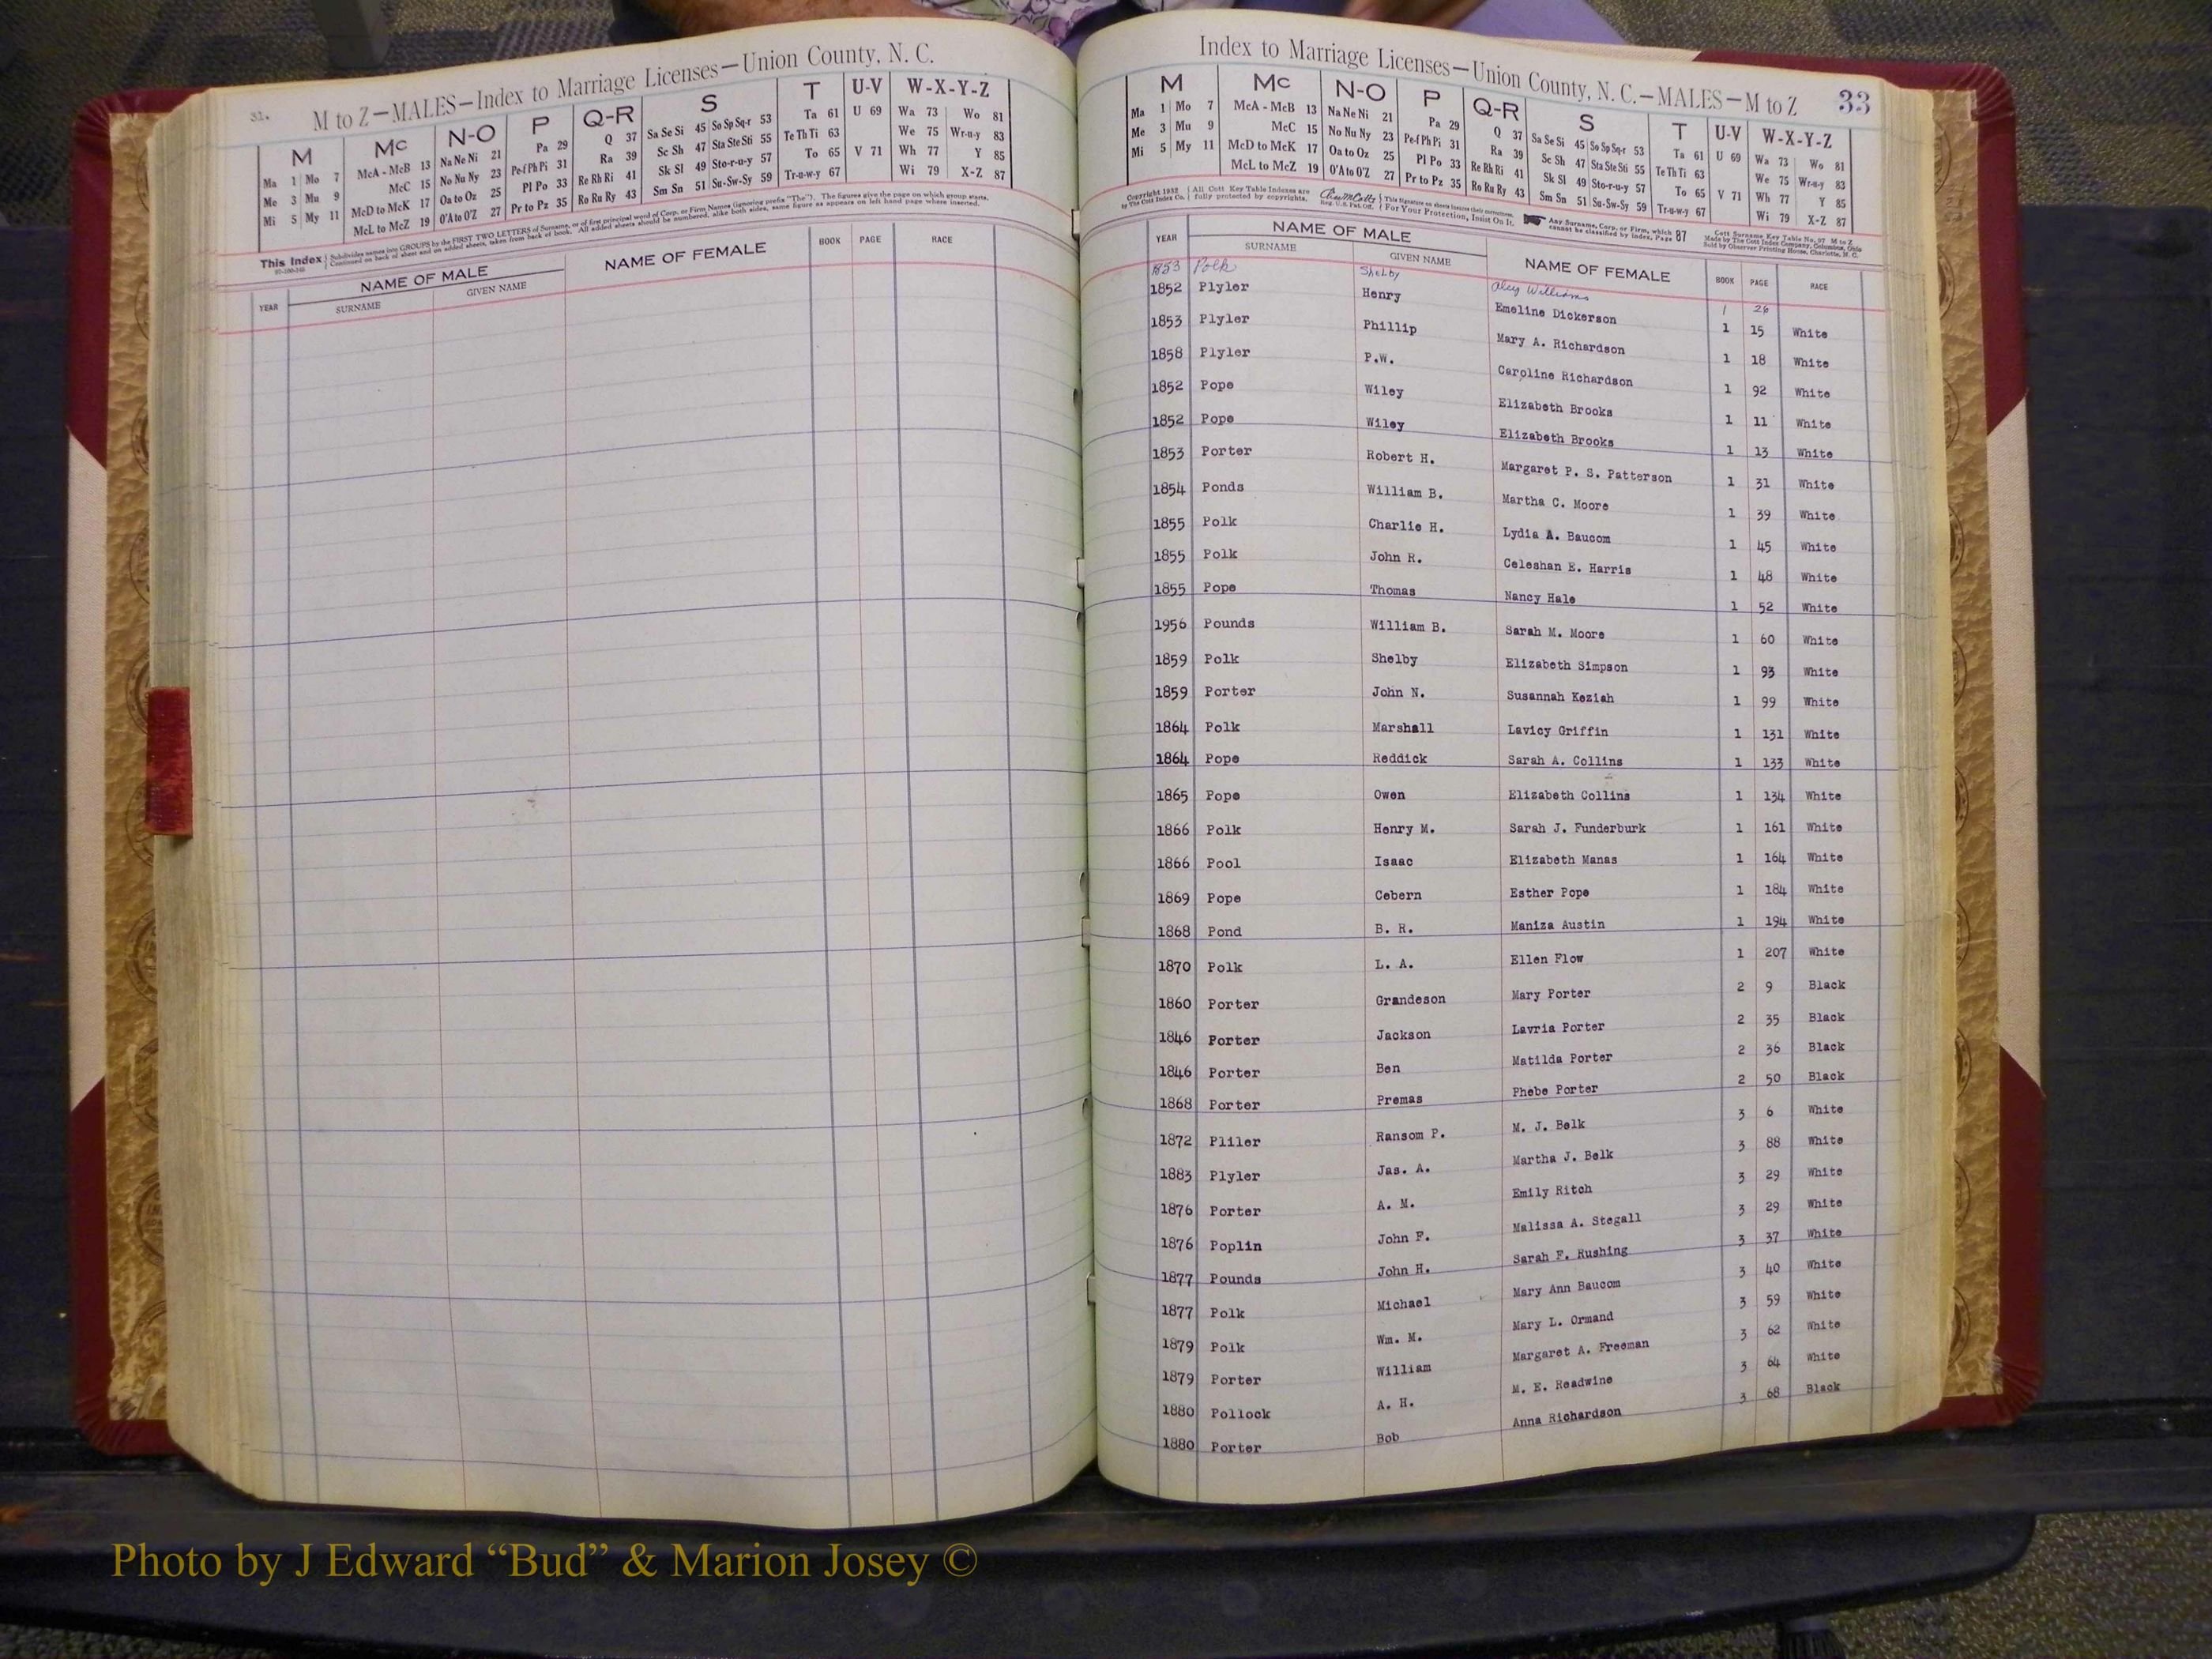 31.
M to Z—MALES—Index to Marriage Licenses—Union County, N. C.
M Mc N-O P Q-R S T U-V W-X-Y-Z
Ma 1 Mo 7 McA - McB 13 Na Ne Ni 21 Pa 29 Q 37 Sa Se Si 45 So Sp Sq-r 53 Ta 61 U 69 Wa 73 Wo 81
Me 3 Mu 9 McC 15 No Nu Ny 23 Pe-f Ph Pi 31 Ra 39 Sc Sh 47 Sta Ste Sti 55 Te Th Ti 63 We 75 Wr-u-y 83
Mi 5 My 11 McD to McK 17 Oa to Oz 25 Pl Po 33 Re Rh Ri 41 Sk Sl 49 Sto-r-u-y 57 To 65 V 71 Wh 77 Y 85
McL to McZ 19 O'A to O'Z 27 Pr to Pz 35 Ro Ru Ry 43 Sm Sn 51 Su-Sw-Sy 59 Tr-u-w-y 67 Wi 79 X-Z 87
This Index Subdivides names into GROUPS by the FIRST TWO LETTERS of Surname, or of first principal word of Corp. or Firm Names (ignoring prefix "The"). The figures give the page on which group starts.
Continued on back of sheet and on added sheets, taken from back of book. All added sheets should be numbered, alike both sides, same figure as appears on left hand page where inserted.
YEAR NAME OF MALE NAME OF FEMALE BOOK PAGE RACE
SURNAME GIVEN NAME
Index to Marriage Licenses—Union County, N. C.—MALES—M to Z 33
M Mc N-O P Q-R S T U-V W-X-Y-Z
Ma 1 Mo 7 McA - McB 13 Na Ne Ni 21 Pa 29 Q 37 Sa Se Si 45 So Sp Sq-r 53 Ta 61 U 69 Wa 73 Wo 81
Me 3 Mu 9 McC 15 No Nu Ny 23 Pe-f Ph Pi 31 Ra 39 Sc Sh 47 Sta Ste Sti 55 Te Th Ti 63 We 75 Wr-u-y 83
Mi 5 My 11 McD to McK 17 Oa to Oz 25 Pl Po 33 Re Rh Ri 41 Sk Sl 49 Sto-r-u-y 57 To 65 V 71 Wh 77 Y 85
McL to McZ 19 O'A to O'Z 27 Pr to Pz 35 Ro Ru Ry 43 Sm Sn 51 Su-Sw-Sy 59 Tr-u-w-y 67 Wi 79 X-Z 87
Copyright 1932 by The Cott Index Co. All Cott Key Table Indexes are fully protected by copyrights. Reg. U.S. Pat. Off. This signature on sheets insures their movement. For Your Protection, Insist On It. Any Surname, Corp. or Firm, which cannot be classified by index, Page 87
Cott Surname Key Table No. 97 M to Z Made by The Cott Index Company, Columbus, Ohio Sold by Observer Printing House, Charlotte, N. C.
YEAR NAME OF MALE NAME OF FEMALE BOOK PAGE RACE
SURNAME GIVEN NAME
1853 Polk Shelby Williams 1 26
1852 Plyler Henry Emeline Dickerson 1 15 White
1853 Plyler Phillip Mary A. Richardson 1 18 White
1858 Plyler P.W. Caroline Richardson 1 92 White
1852 Pope Wiley Elizabeth Brooks 1 11 White
1852 Pope Wiley Elizabeth Brooks 1 13 White
1853 Porter Robert H. Margaret P. S. Patterson 1 31 White
1854 Ponds William B. Martha C. Moore 1 39 White
1855 Polk Charlie H. Lydia A. Baucom 1 45 White
1855 Polk John R. Celeshan E. Harris 1 48 White
1855 Pope Thomas Nancy Hale 1 52 White
1956 Pounds William B. Sarah M. Moore 1 60 White
1859 Polk Shelby Elizabeth Simpson 1 93 White
1859 Porter John N. Susannah Keziah 1 99 White
1864 Polk Marshall Lavicy Griffin 1 131 White
1864 Pope Reddick Sarah A. Collins 1 133 White
1865 Pope Owen Elizabeth Collins 1 134 White
1866 Polk Henry M. Sarah J. Funderburk 1 161 White
1866 Pool Isaac Elizabeth Manas 1 164 White
1869 Pope Cebern Esther Pope 1 184 White
1868 Pond B. R. Maniza Austin 1 194 White
1870 Polk L. A. Ellen Flow 1 207 White
1860 Porter Grandeson Mary Porter 2 9 Black
1846 Porter Jackson Lavria Porter 2 35 Black
1846 Porter Ben Matilda Porter 2 36 Black
1868 Porter Premas Phebe Porter 2 50 Black
1872 Pliler Ransom P. M. J. Belk 3 6 White
1883 Plyler Jas. A. Martha J. Belk 3 88 White
1876 Porter A. M. Emily Ritch 3 29 White
1876 Poplin John F. Malissa A. Stegall 3 29 White
1877 Pounds John H. Sarah F. Rushing 3 37 White
1877 Polk Michael Mary Ann Baucom 3 40 White
1879 Polk Wm. M. Mary L. Ormand 3 59 White
1879 Porter William Margaret A. Freeman 3 62 White
1880 Pollock A. H. M. E. Readwine 3 64 White
1880 Porter Bob Anna Richardson 3 68 Black
Photo by J Edward “Bud” & Marion Josey ©